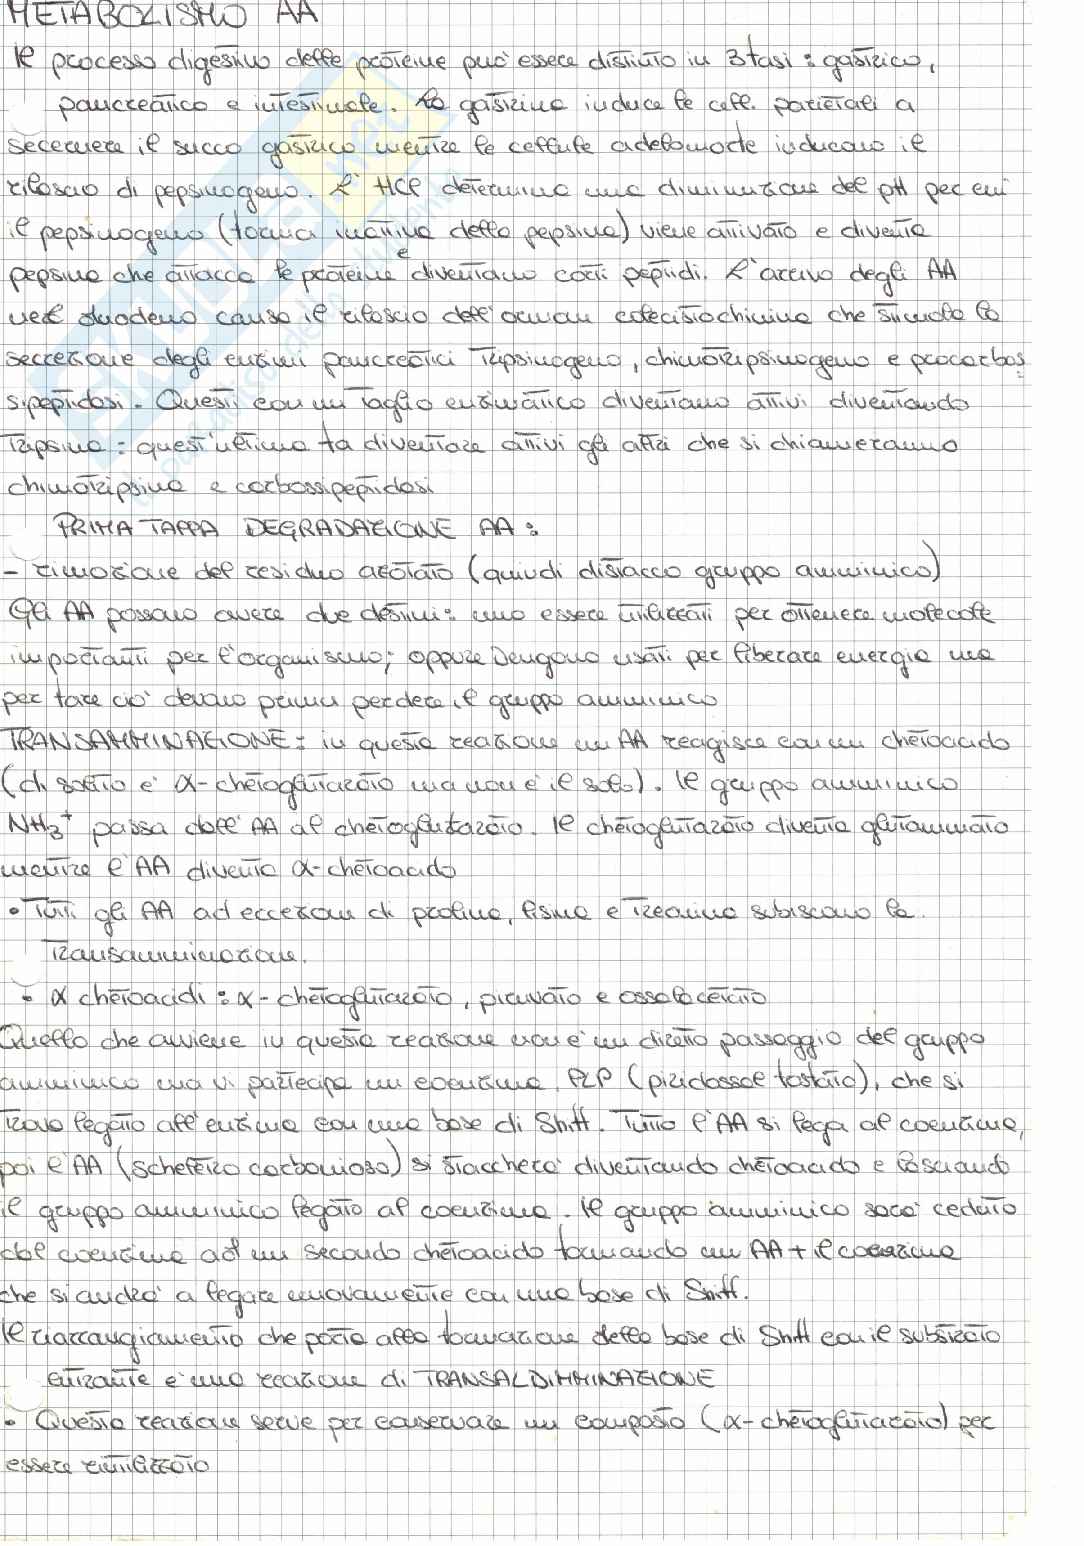 METABOLISMO AA
Il processo digestivo delle proteine può essere distinto in 3 fasi: gastrico,
pancreatico e intestinale. La gastrina induce le cell. parietali a
secernere il succo gastrico mentre le cellule adelomorfe inducono il
rilascio di pepsinogeno. L'HCl determina una diminuzione del pH per cui
il pepsinogeno (forma inattiva della pepsina) viene attivato e diventa
pepsina che attacca le proteine e diventano corti peptidi. L'arrivo degli AA
nel duodeno causa il rilascio dell'ormon colecistochinina che stimola la
secrezione degli enzimi pancreatici tripsinogeno, chimotripsinogeno e procarbos
sipeptidasi. Questi con un taglio enzimatico diventano attivi diventando
tripsina: quest'ultima fa diventare attivi gli altri che si chiameranno
chimotripsina e carbossipeptidasi
PRIMA TAPPA DEGRADAZIONE AA:
- rimozione del residuo azotato (quindi distacco gruppo amminico)
Gli AA possono avere due destini: uno essere utilizzati per ottenere molecole
importanti per l'organismo; oppure vengono usati per liberare energia ma
per fare ciò devono prima perdere il gruppo amminico
TRANSAMMINAZIONE: in questa reazione un AA reagisce con un chetoacido
(di solito è α-chetoglutarato ma non è il solo). Il gruppo amminico
NH3+ passa dall'AA al chetoglutarato. Il chetoglutarato diventa glutammato
mentre l'AA diventa α-chetoacido
• Tutti gli AA ad eccezion di prolina, lisina e treonina subiscono la
transamminazione.
• α chetoacidi: α-chetoglutarato, piruvato e ossalacetato
Quello che avviene in questa reazione non è un diretto passaggio del gruppo
amminico ma vi partecipa un coenzima, PLP (piridossal fosfato), che si
trova legato all'enzima con una base di Shiff. Tutto l'AA si lega al coenzima,
poi l'AA (scheletro carbonioso) si staccherà diventando chetoacido e lasciando
il gruppo amminico legato al coenzima. Il gruppo amminico sarà ceduto
dal coenzima ad un secondo chetoacido formando un AA + il coenzima
che si andrà a legare nuovamente con una base di Shiff.
Il riarrangiamento che porta alla formazione della base di Shiff con il substrato
entrante è una reazione di TRANSALDIMMINAZIONE
• Questa reazione serve per conservare un composto (α-chetoglutarato) per
essere riutilizzato